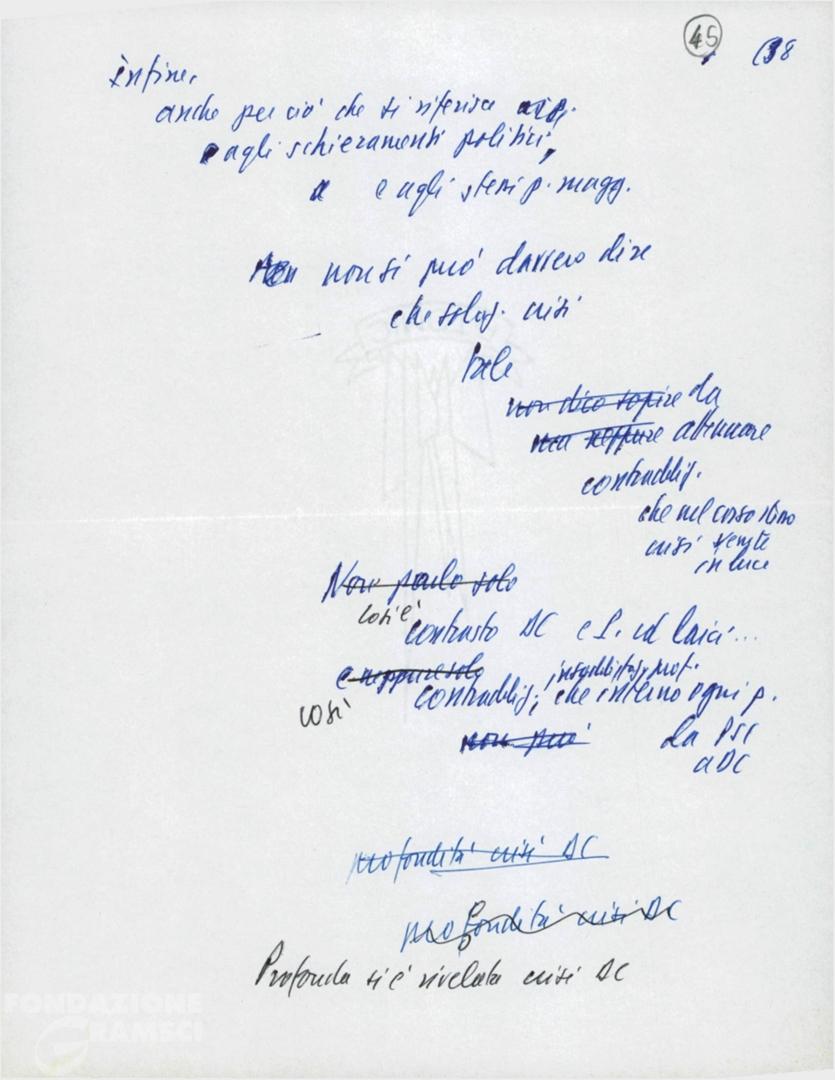 45 (38
Infine,
anche per ciò che si riferisce ai p.
e agli schieramenti politici,
e agli stessi p. magg.
non si può davvero dire
che soluz. crisi
tale
non dico sopire da
ma neppure attenuare
contraddiz.
che nel corso stesso
crisi venute
in luce
Non parlo solo
così è
contrasto DC e S. ed laici...
e neppure solo
contraddiz., che interno ogni p.
così
non può da PSI
a DC
profondità crisi DC
profondità crisi DC
Profonda si è rivelata crisi DC
FONDAZIONE
GRAMSCI